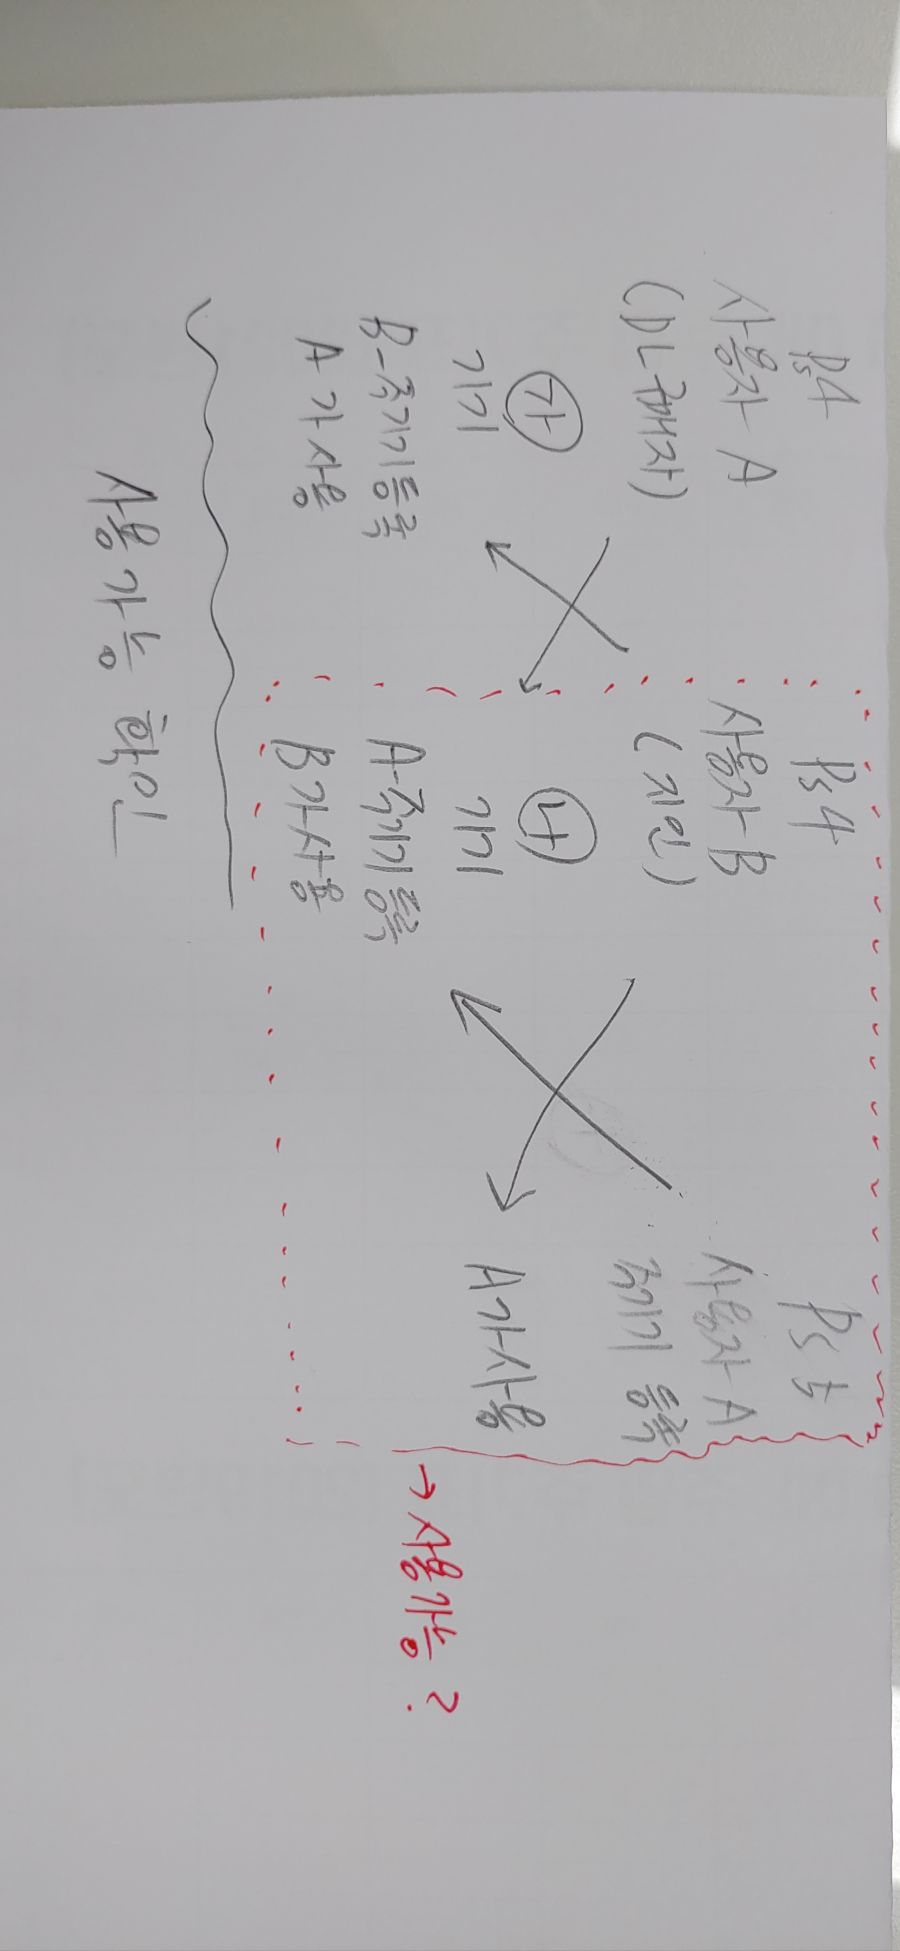 PS4
사용자 A
(DL구매자)
가
기기
B-주기기등록
A가 사용
PS4
사용자 B
(지인)
나
기기
A-주기기등록
B가 사용
PS5
사용자 A
주기기 등록
A가 사용
사용가능 확인
→ 사용가능?